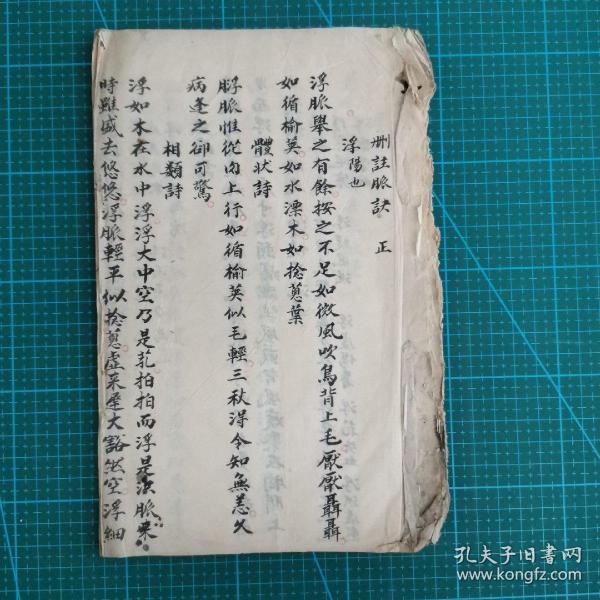 刪註脈訣 正
浮陽也
浮脈舉之有餘按之不足如微風吹鳥背上毛厭厭聶聶
如循榆莢如水漂木如捻蔥葉
體狀詩
浮脈惟從肉上行如循榆莢似毛輕三秋得令知無恙久
病逢之卻可驚
相類詩
浮如木在水中浮浮大中空乃是芤拍拍而浮是洪脈來
時雖盛去悠悠浮脈輕平似捻蔥虛來遲大豁然空浮細
孔夫子旧书网
www.kongfz.com